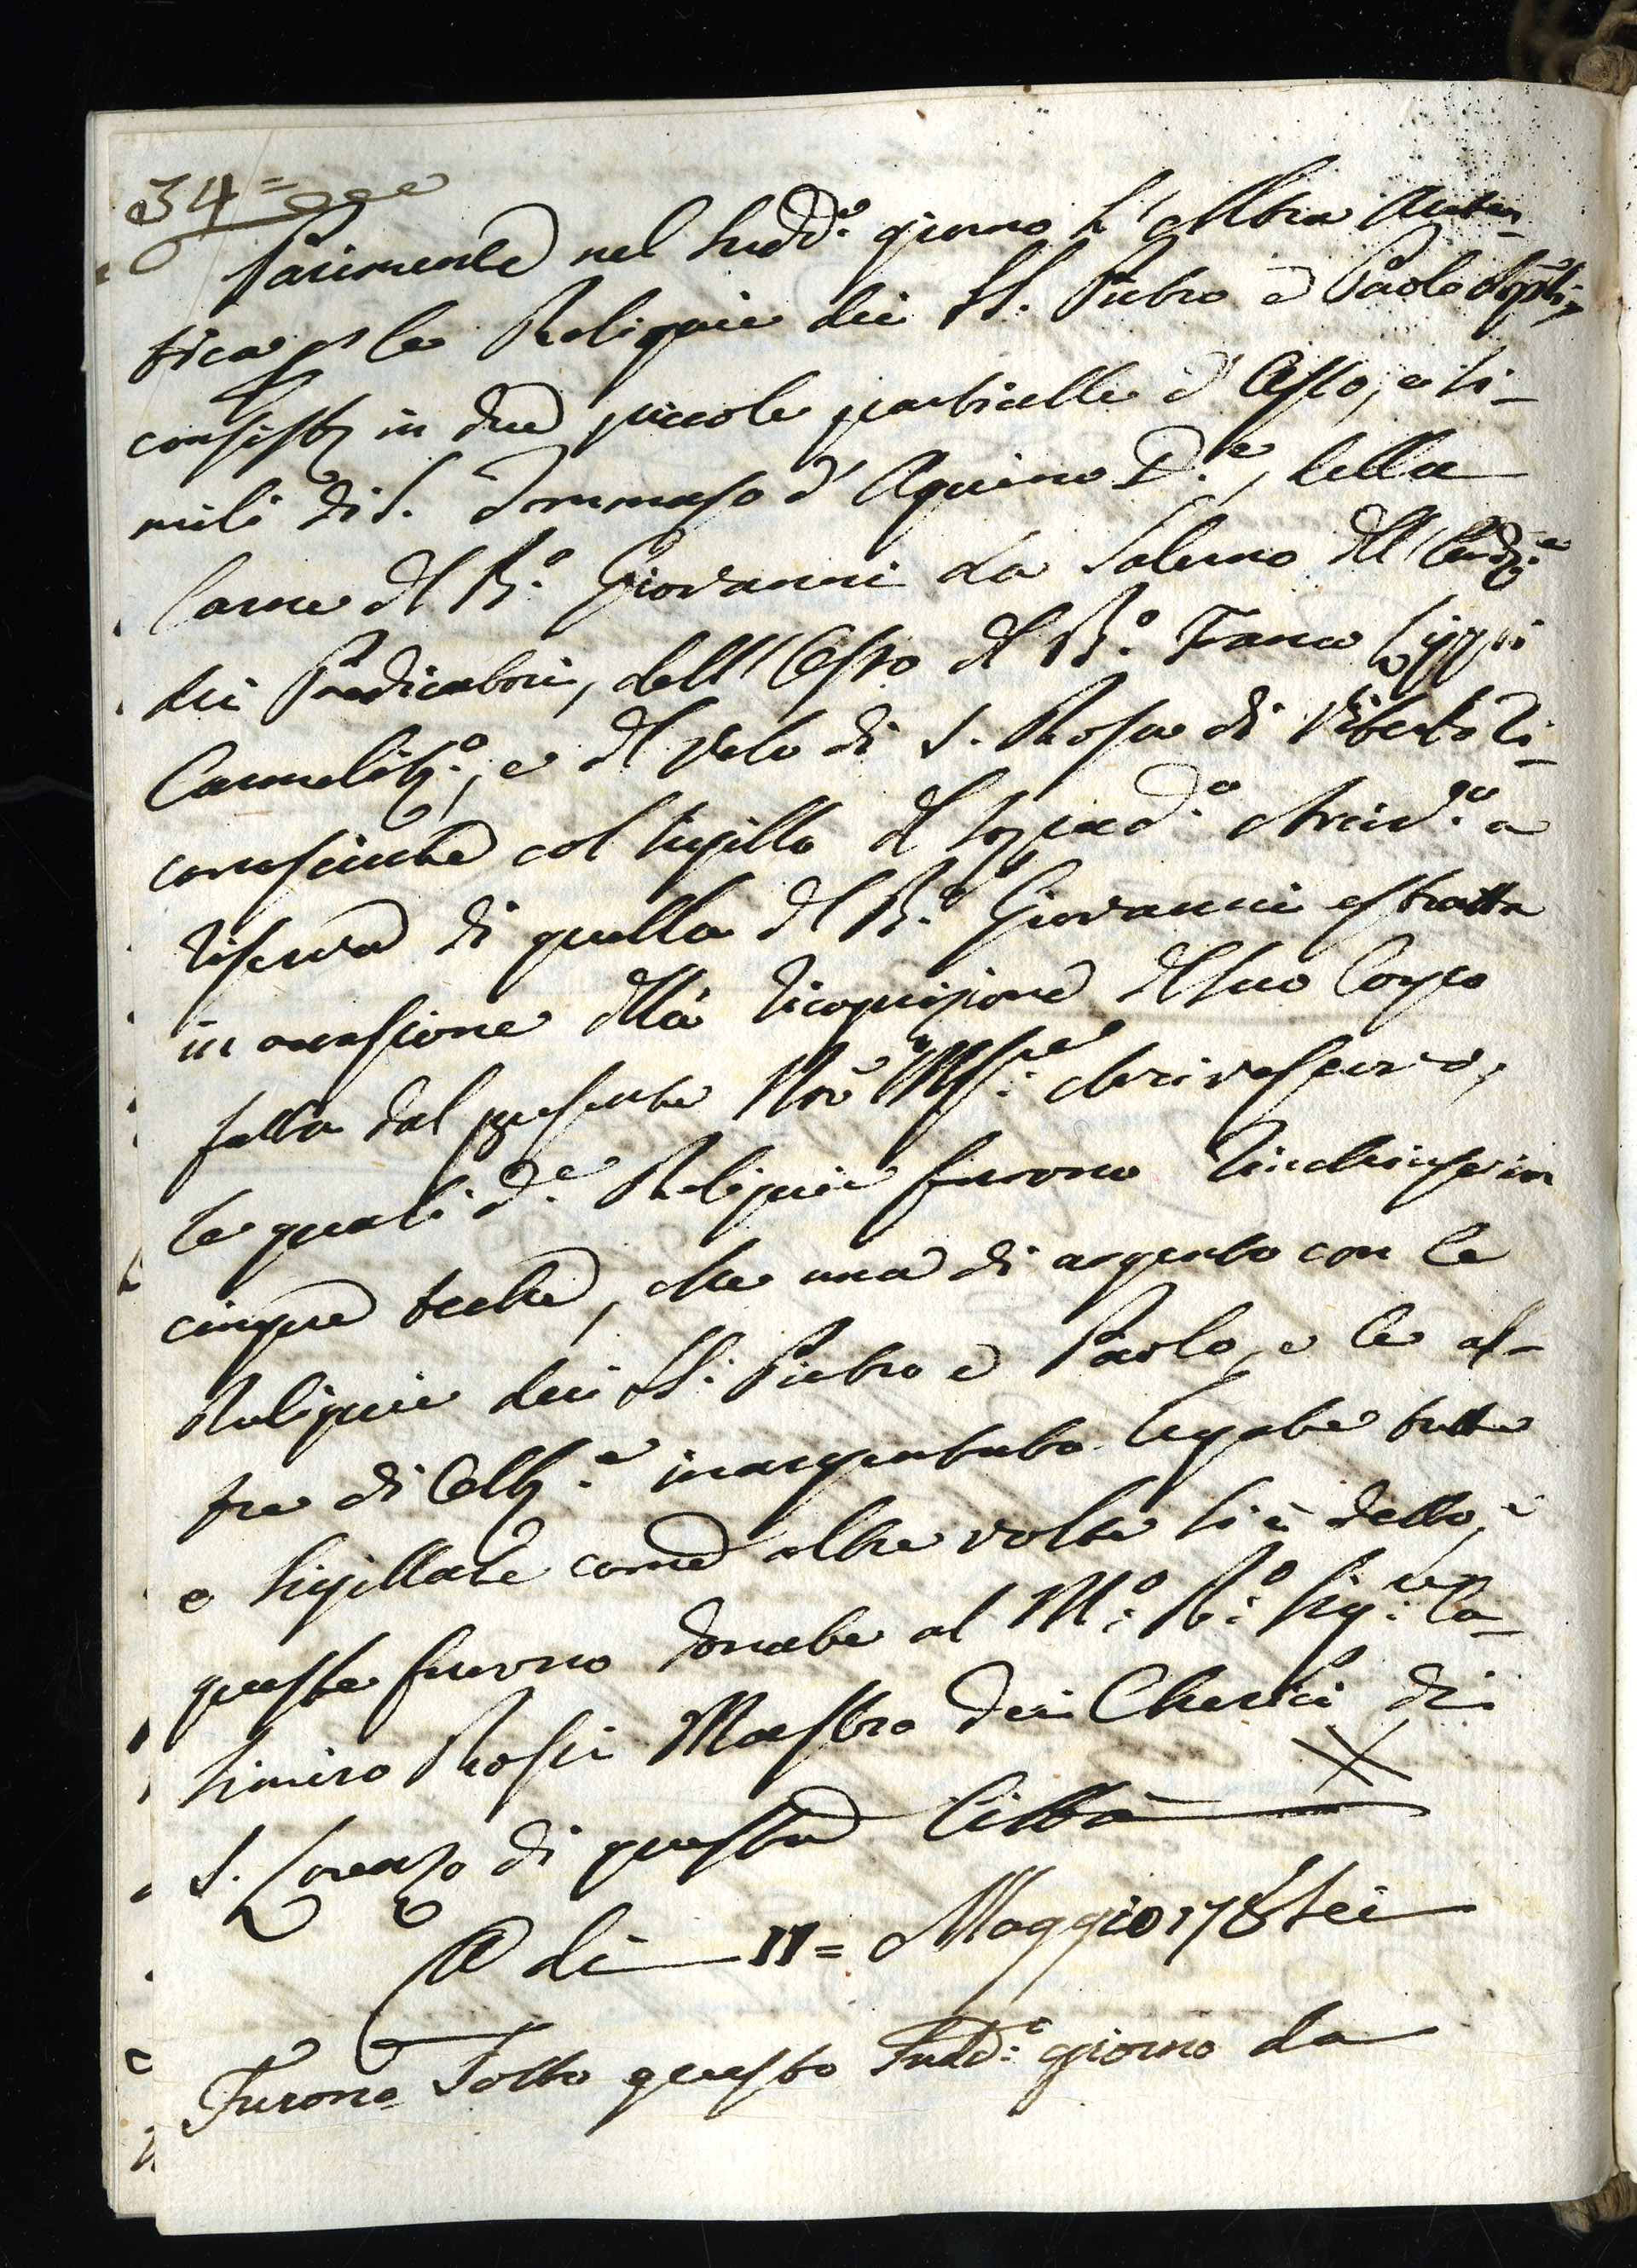 34=
Parimente nel Sudd.º giorno l'Altra Auten-
tica p le Reliquie dei SS. Pietro e Paolo Apli,
consistti in due piccole particelle d'Osso, e Si-
mili di S. Tommaso d'Aquino D.e, della
Carne dl B.º Giovanni da Salerno dll'Ord.e
dei Predicatori, dell'Osso dl B.º Franco Lippi
Carmelit.º, e dl Velo di S. Rosa di Viterbo ri-
conosciute col Sigillo dl Soprad.º Arciv.º a
riserva di quella dl B.º Giovanni estratta
in occasione dlla ricognizione dl suo Corpo
fatta dal presente Nro Msr.e Arcivescovo,
le quali d.e Reliquie furono rinchiuse in
cinque teche, che una di argento con le
Reliquie dei SS. Pietro e Paolo, e le al-
tre di inargentato legate tutte
e Sigillate come altre volte si è detto, e
queste furono donate al M.º R.º Sig.re Ca-
simiro Rossi Maestro dei Cherici di
S. Lorenzo di questa Città
A di 11= Maggio 178Sei
Furono Sotto questo Sudd.º giorno da